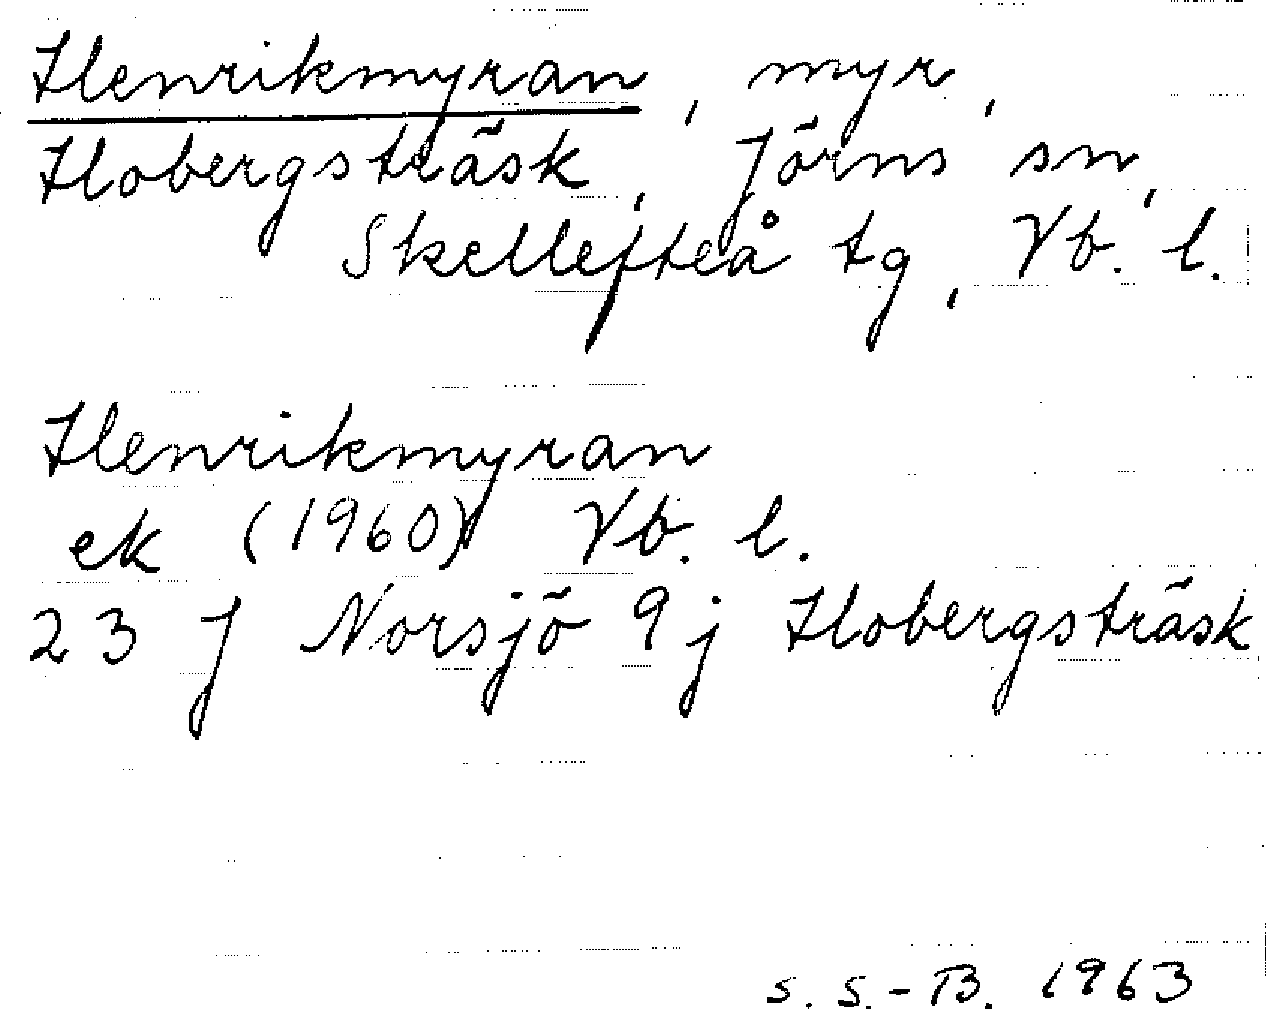 Henrikmyran, myr,
Hobergsträsk, Jörns sn,
Skellefteå tg, Vb. l.
Henrikmyran
ek (1960) Vb. l.
23 J Norsjö 9 j Hobergsträsk
S. S.-B. 1963